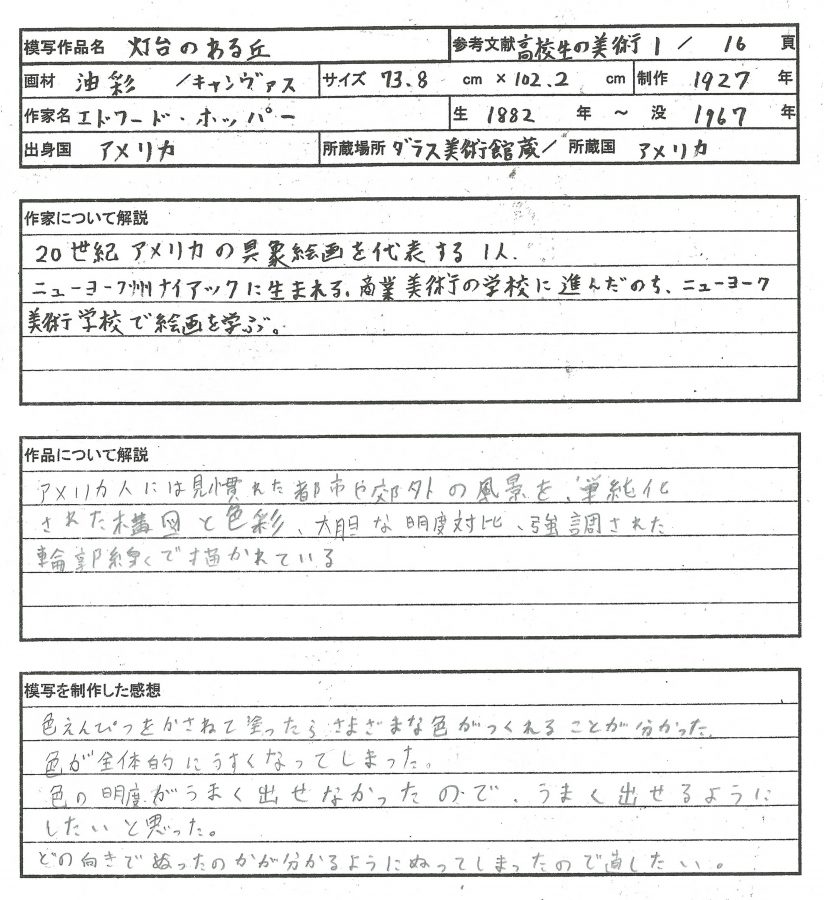 模写作品名 灯台のある丘 参考文献 高校生の美術 1 / 16 頁
画材 油彩 /キャンヴァス サイズ 73.8 cm × 102.2 cm 制作 1927 年
作家名 エドワード・ホッパー 生 1882 年 ~ 没 1967 年
出身国 アメリカ 所蔵場所 ダラス美術館蔵/ 所蔵国 アメリカ
作家について解説
20世紀アメリカの具象絵画を代表する1人.
ニューヨーク州ナイアックに生まれる。商業美術の学校に進んだのち、ニューヨーク
美術学校で絵画を学ぶ。
作品について解説
アメリカ人には見慣れた都市や郊外の風景を、単純化
された構図と色彩、大胆な明度対比、強調された
輪郭線で描かれている
模写を制作した感想
色えんぴつをかさねて塗ったらさまざまな色がつくれることが分かった。
色が全体的にうすくなってしまった。
色の明度がうまく出せなかったので、うまく出せるように
したいと思った。
どの向きでぬったのかが分かるようにぬってしまったので直したい。